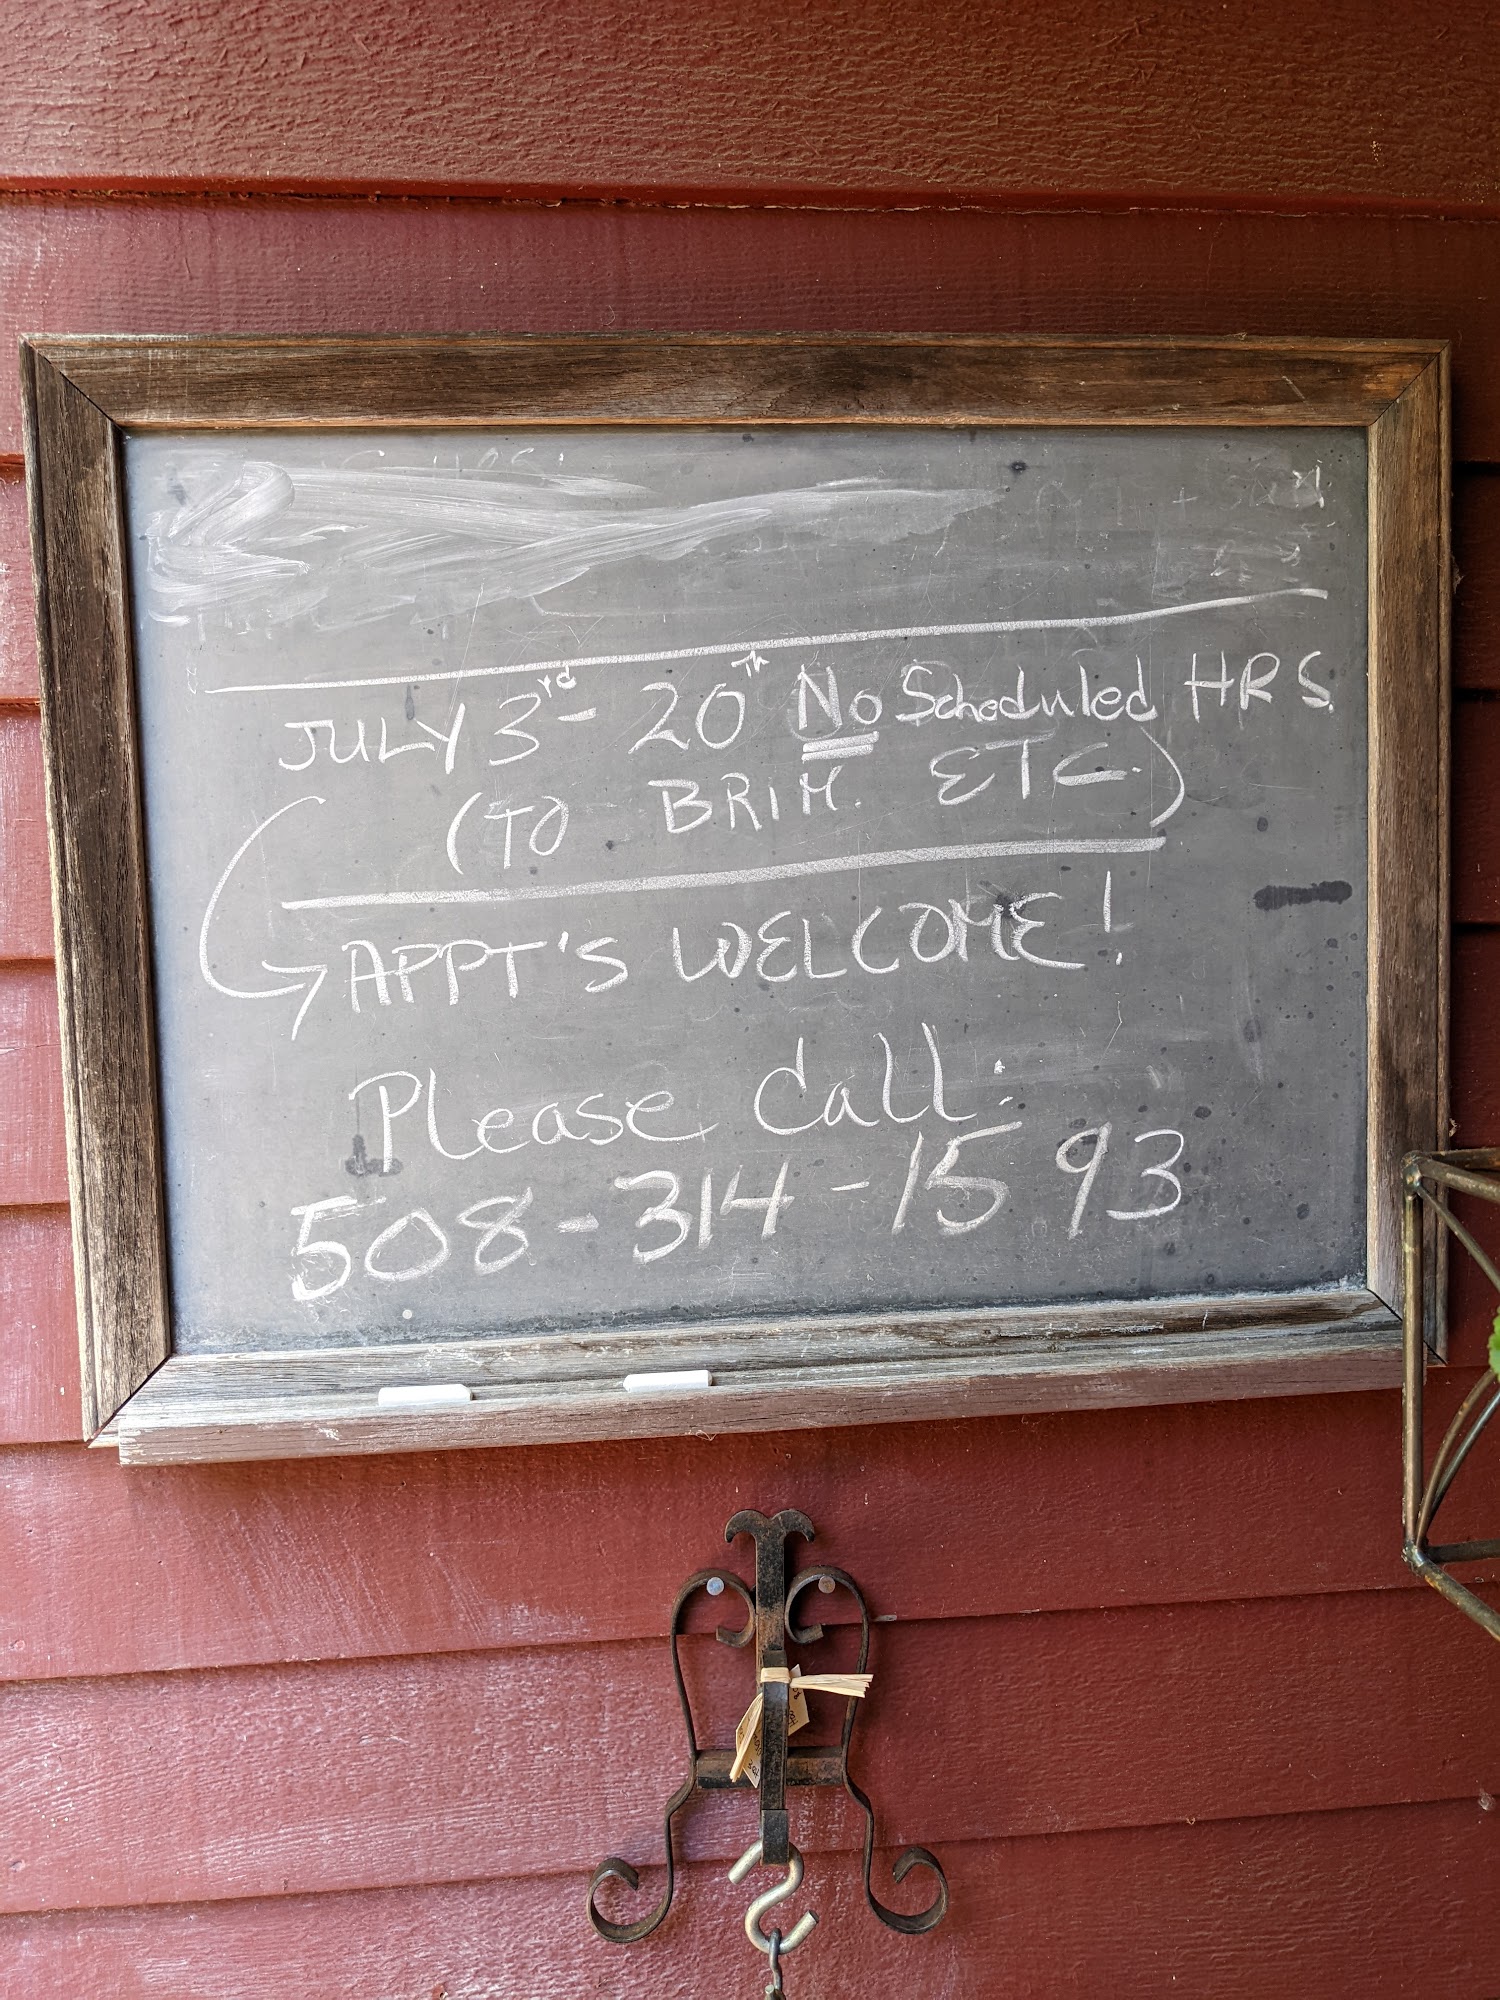 JULY 3rd - 20th No Scheduled HRS.
(TO BRIM. ETC.)
APPT'S WELCOME!
Please Call:
508-314-1593